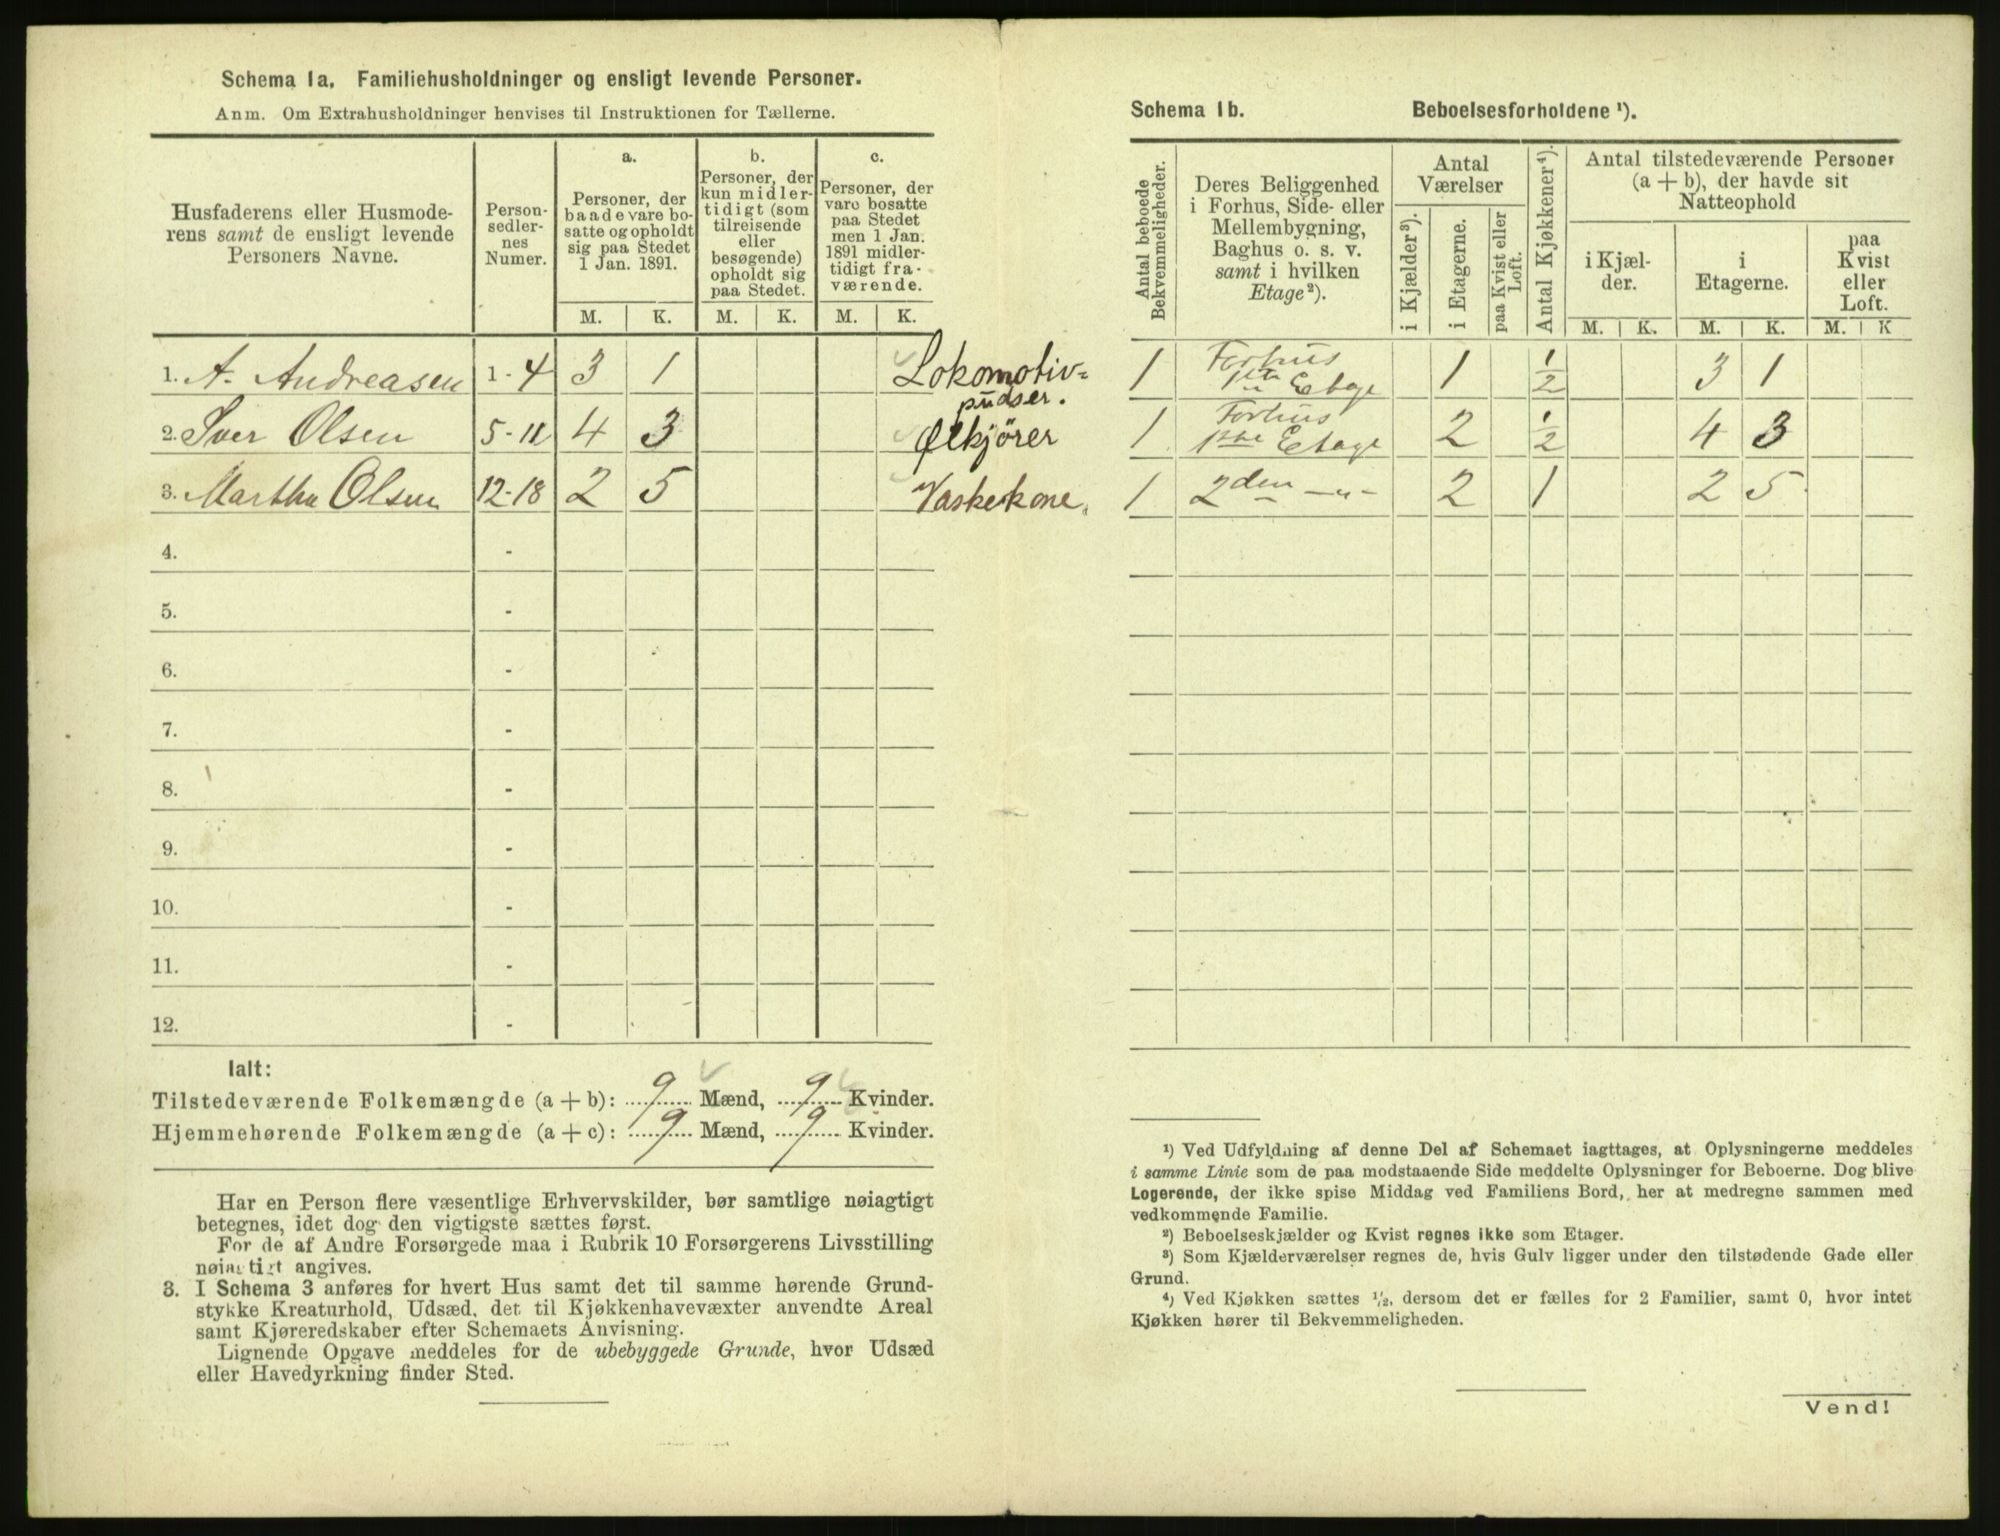 Schema 1a. Familiehusholdninger og ensligt levende Personer.
Anm. Om Extrahusholdninger henvises til Instruktionen for Tællerne.
Husfaderens eller Husmode-
rens samt de ensligt levende
Personers Navne.
Person-
sedler-
nes
Numer.
a.
Personer, der
baade vare bo-
satte og opholdt
sig paa Stedet
1 Jan. 1891.
b.
Personer, der
kun midler-
tidigt (som
tilreisende
eller
besøgende)
opholdt sig
paa Stedet.
c.
Personer, der
vare bosatte
paa Stedet
men 1 Jan.
1891 midler-
tidigt fra-
værende.
M. K. M. K. M. K.
1. A. Andreasen 1-4 3 1 Lokomotiv-
pudser.
2. Iver Olsen 5-11 4 3 Ølkjörer
3. Martha Olsen 12-18 2 5 Vaskerkone.
4. -
5. -
6. -
7. -
8. -
9. -
10. -
11. -
12. -
Ialt:
Tilstedeværende Folkemængde (a + b): 9 Mænd, 9 Kvinder.
Hjemmehørende Folkemængde (a + c): 9 Mænd, 9 Kvinder.
Har en Person flere væsentlige Erhvervskilder, bør samtlige nøiagtigt
betegnes, idet dog den vigtigste sættes først.
For de af Andre Forsørgede maa i Rubrik 10 Forsørgerens Livsstilling
nøiagtigt angives.
3. I Schema 3 anføres for hvert Hus samt det til samme hørende Grund-
stykke Kreaturhold, Udsæd, det til Kjøkkenhavevæxter anvendte Areal
samt Kjøreredskaber efter Schemaets Anvisning.
Lignende Opgave meddeles for de ubebyggede Grunde, hvor Udsæd
eller Havedyrkning finder Sted.
Schema 1b. Beboelsesforholdene ¹).
Antal beboede
Bekvemmeligheder.
Deres Beliggenhed
i Forhus, Side- eller
Mellembygning,
Baghus o. s. v.
samt i hvilken
Etage²).
Antal
Værelser
i Kjælder³).
i Etagerne.
paa Kvist eller
Loft.
Antal Kjøkkener⁴).
Antal tilstedeværende Personer
(a + b), der havde sit
Natteophold
i Kjæl-
der.
i
Etagerne.
paa
Kvist
eller
Loft.
M. K. M. K. M. K
1 Forhus
1ste Etage 1 1/2 3 1
1 Forhus
1ste Etage 2 1/2 4 3
1 2den -„- 2 1 2 5
¹) Ved Udfyldning af denne Del af Schemaet iagttages, at Oplysningerne meddeles
i samme Linie som de paa modstaaende Side meddelte Oplysninger for Beboerne. Dog blive
Logerende, der ikke spise Middag ved Familiens Bord, her at medregne sammen med
vedkommende Familie.
²) Beboelseskjælder og Kvist regnes ikke som Etager.
³) Som Kjælderværelser regnes de, hvis Gulv ligger under den tilstødende Gade eller
Grund.
⁴) Ved Kjøkken sættes ½, dersom det er fælles for 2 Familier, samt 0, hvor intet
Kjøkken hører til Bekvemmeligheden.
Vend!